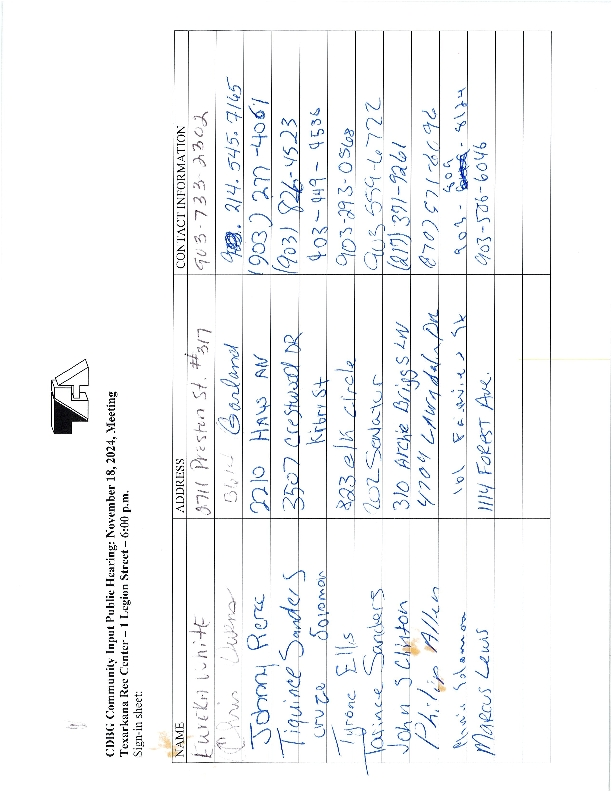 CDBG Community Input Public Hearing: November 18, 2024, Meeting
Texarkana Rec Center – 1 Legion Street – 6:00 p.m.
Sign-in sheet:
NAME ADDRESS CONTACT INFORMATION
Eureka White 2711 Preston St. #317 903-733-2302
Chris Owens Garland 214.545.7165
Johnny Pierce 2210 (903) 277-4061
Tiquince Sanders 3507 Crestwood DR (903) 826-4523
Solomon Kibri St 903-449-9536
Tyrone Ellis 823 elk circle 903-293-0568
Tarince Sanders 903 559-6722
John S Clinton 310 Archie Briggs LN (217) 371-9261
Philip Allen 4704 (870) 571-6696
Solomon 903- 8124
Marcus Lewis 1114 FOREST Ave. 903-506-6046